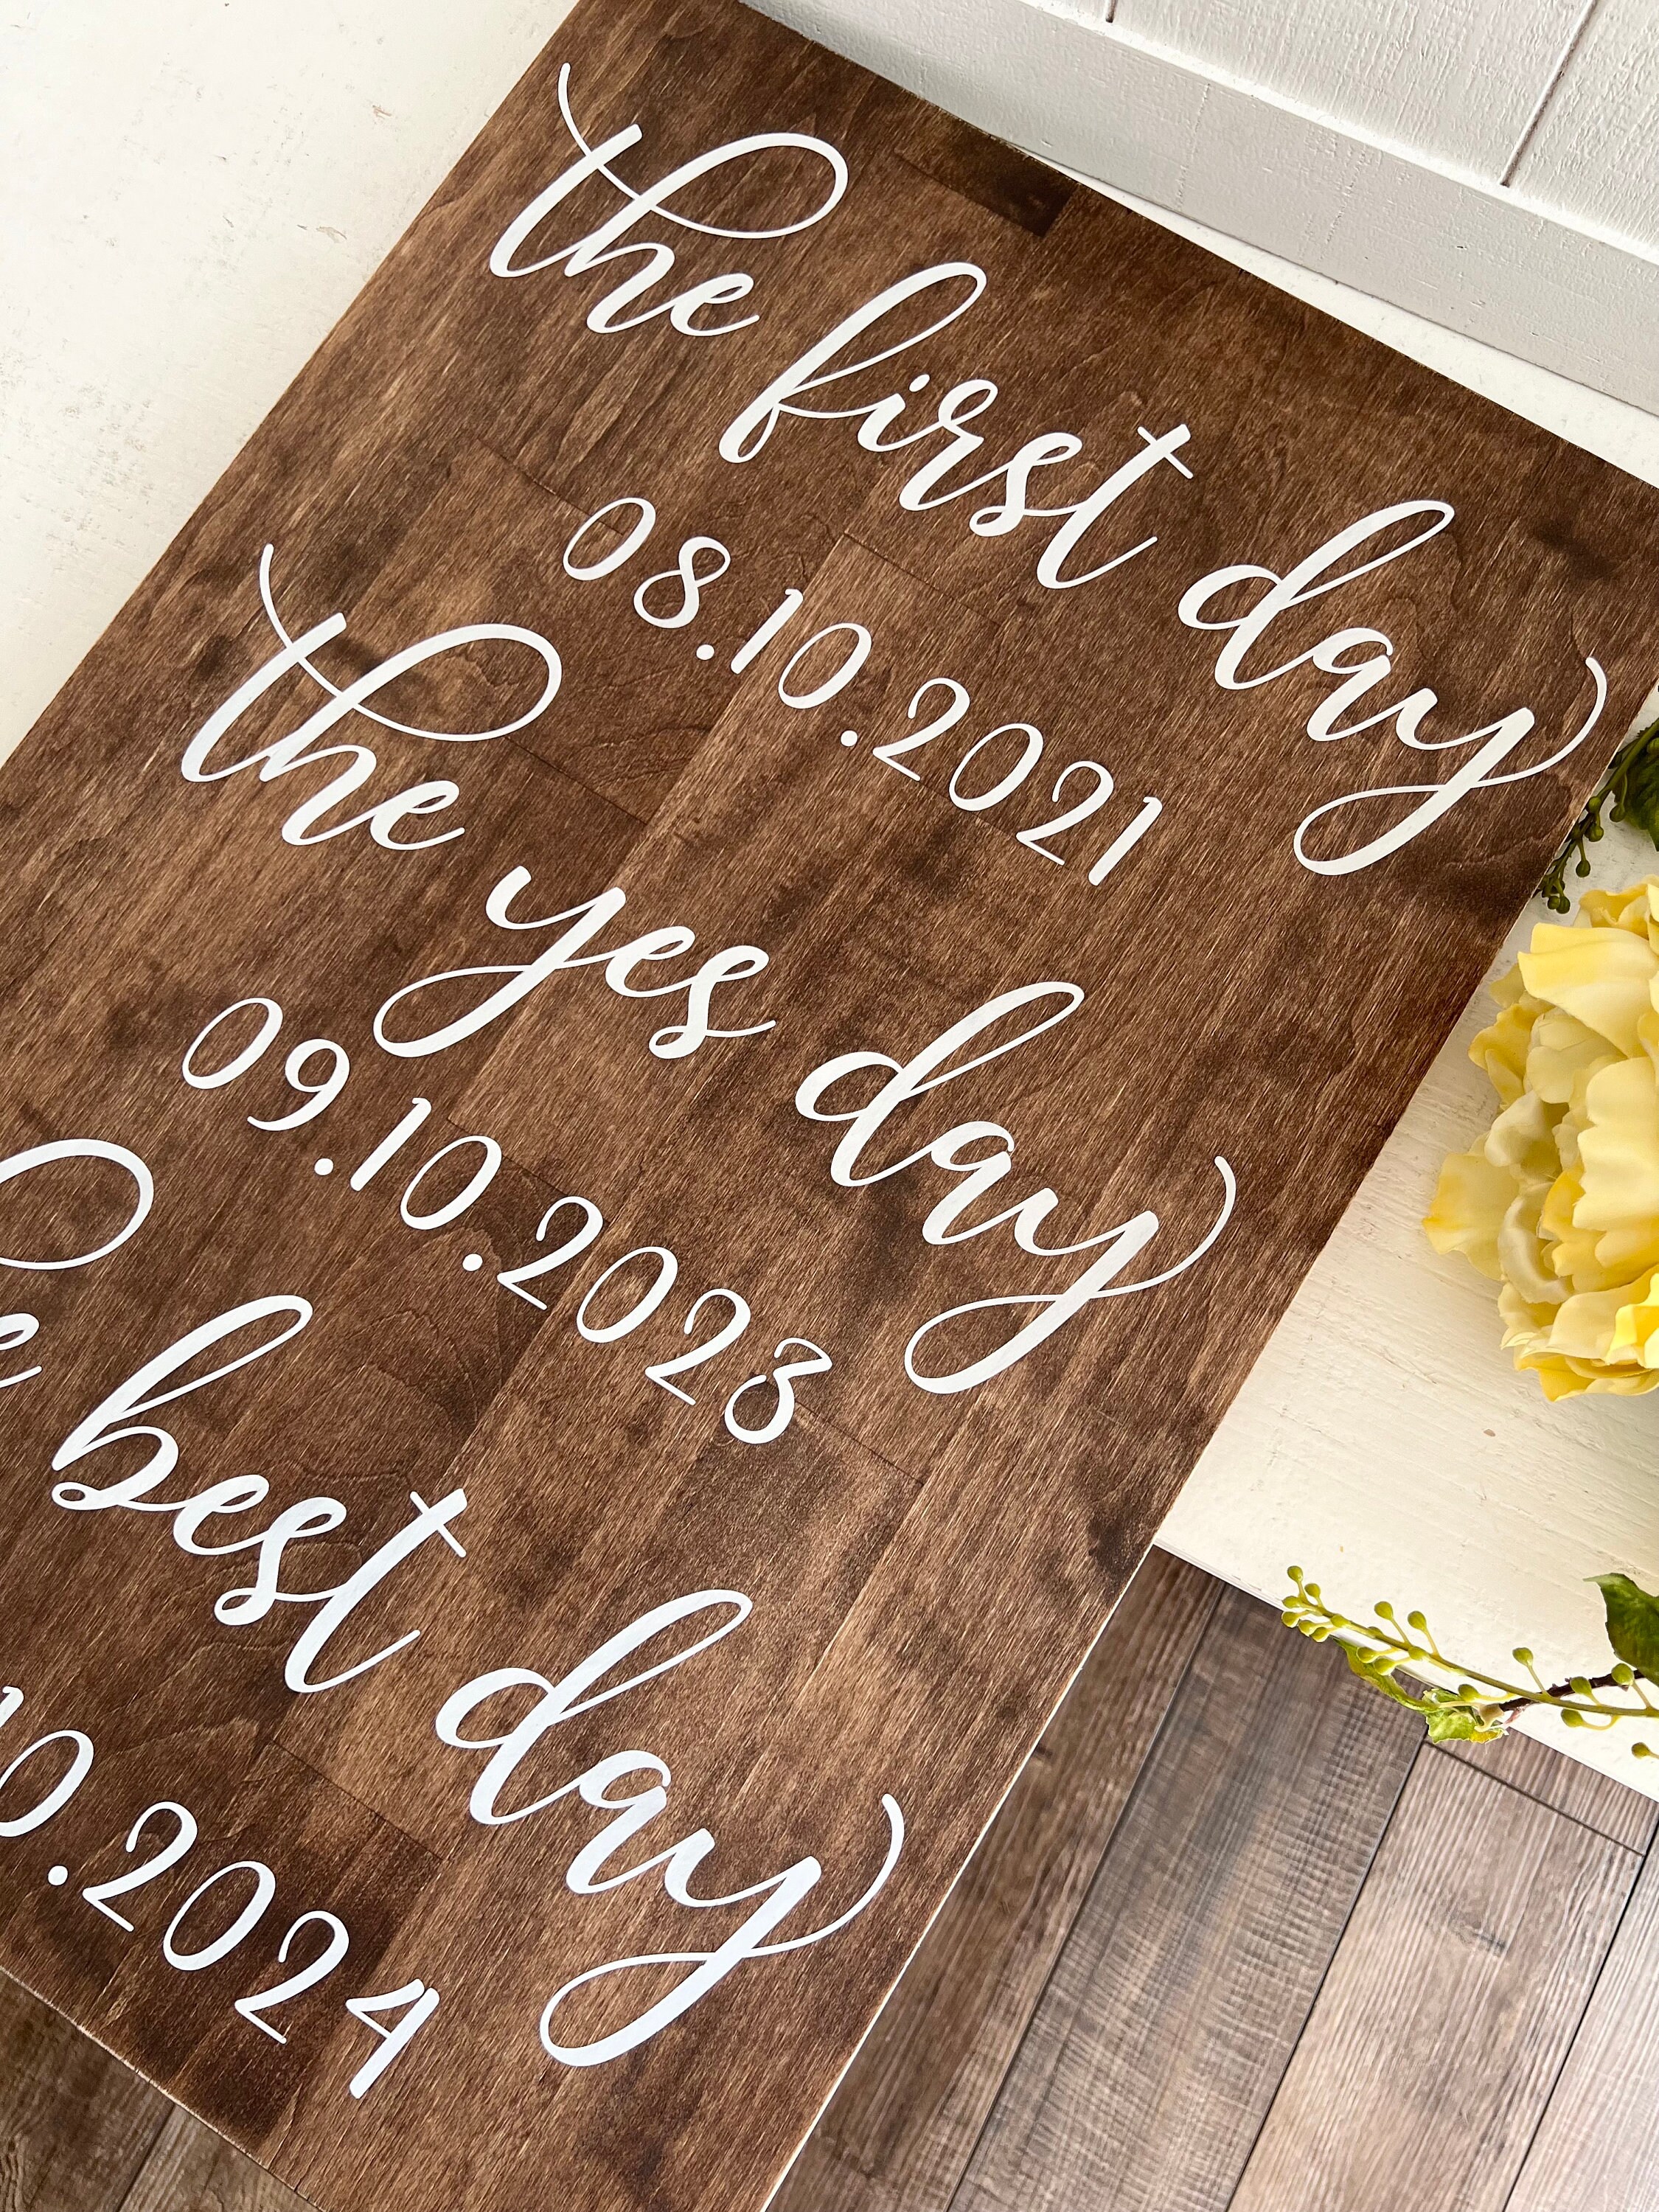 the first day
08.10.2021
the yes day
09.10.2023
best day
10.2024